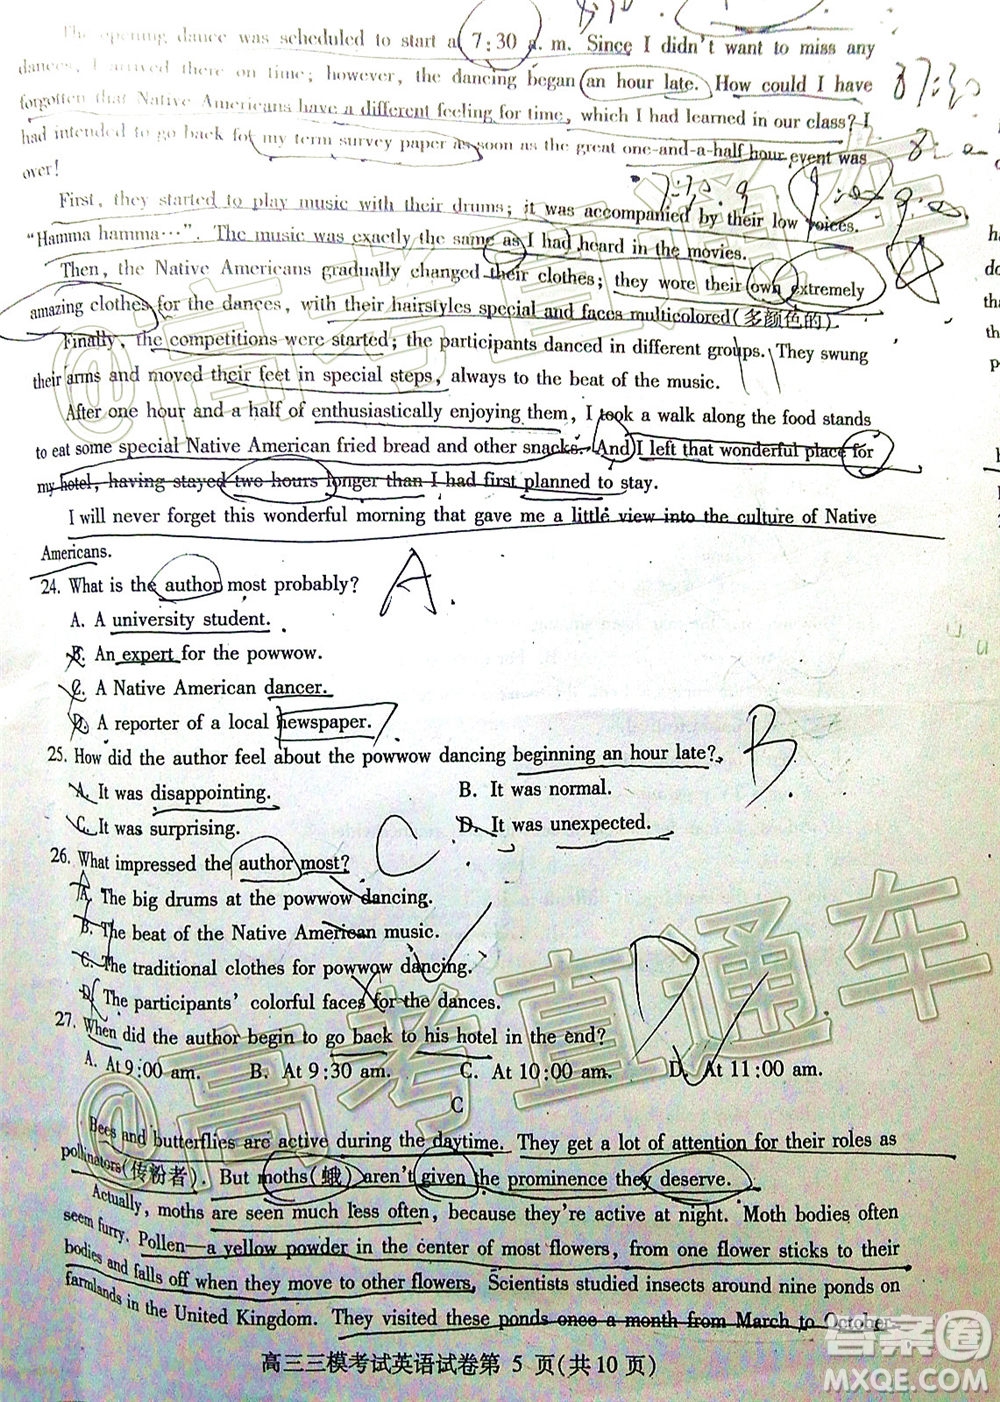 The opening dance was scheduled to start a 7:30 a. m. Since I didn't want to miss any
dances, I arrived there on time; however, the dancing began an hour late. How could I have
forgotten that Native Americans have a different feeling for time, which I had learned in our class? I
had intended to go back for my term survey paper as soon as the great one-and-a-half hour event was
over!
First, they started to play music with their drums; it was accompanied by their low voices.
"Hamma hamma…". The music was exactly the same as I had heard in the movies.
Then, the Native Americans gradually changed their clothes; they wore their own extremely
amazing clothes for the dances, with their hairstyles special and faces multicolored(多颜色的).
Finally, the competitions were started; the participants danced in different groups. They swung
their arms and moved their feet in special steps, always to the beat of the music.
After one hour and a half of enthusiastically enjoying them, I took a walk along the food stands
to eat some special Native American fried bread and other snacks. And I left that wonderful place for
my hotel, having stayed two hours longer than I had first planned to stay.
I will never forget this wonderful morning that gave me a little view into the culture of Native
Americans.
24. What is the author most probably?
A.
A. A university student.
B. An expert for the powwow.
C. A Native American dancer.
D. A reporter of a local newspaper.
25. How did the author feel about the powwow dancing beginning an hour late?
B.
A. It was disappointing. B. It was normal.
C. It was surprising. D. It was unexpected.
26. What impressed the author most?
C
A. The big drums at the powwow dancing.
B. The beat of the Native American music.
C. The traditional clothes for powwow dancing.
D. The participants' colorful faces for the dances.
27. When did the author begin to go back to his hotel in the end?
D
A. At 9:00 am. B. At 9:30 am. C. At 10:00 am. D. At 11:00 am.
C
Bees and butterflies are active during the daytime. They get a lot of attention for their roles as
pollinators(传粉者). But moths(蛾) aren't given the prominence they deserve.
Actually, moths are seen much less often, because they're active at night. Moth bodies often
seem furry. Pollen—a yellow powder in the center of most flowers, from one flower sticks to their
bodies and falls off when they move to other flowers. Scientists studied insects around nine ponds on
farmlands in the United Kingdom. They visited these ponds once a month from March to October.
高三三模考试英语试卷第 5 页(共10页)
@高考直通车
@高考直通车
答案圈
MXQE.COM